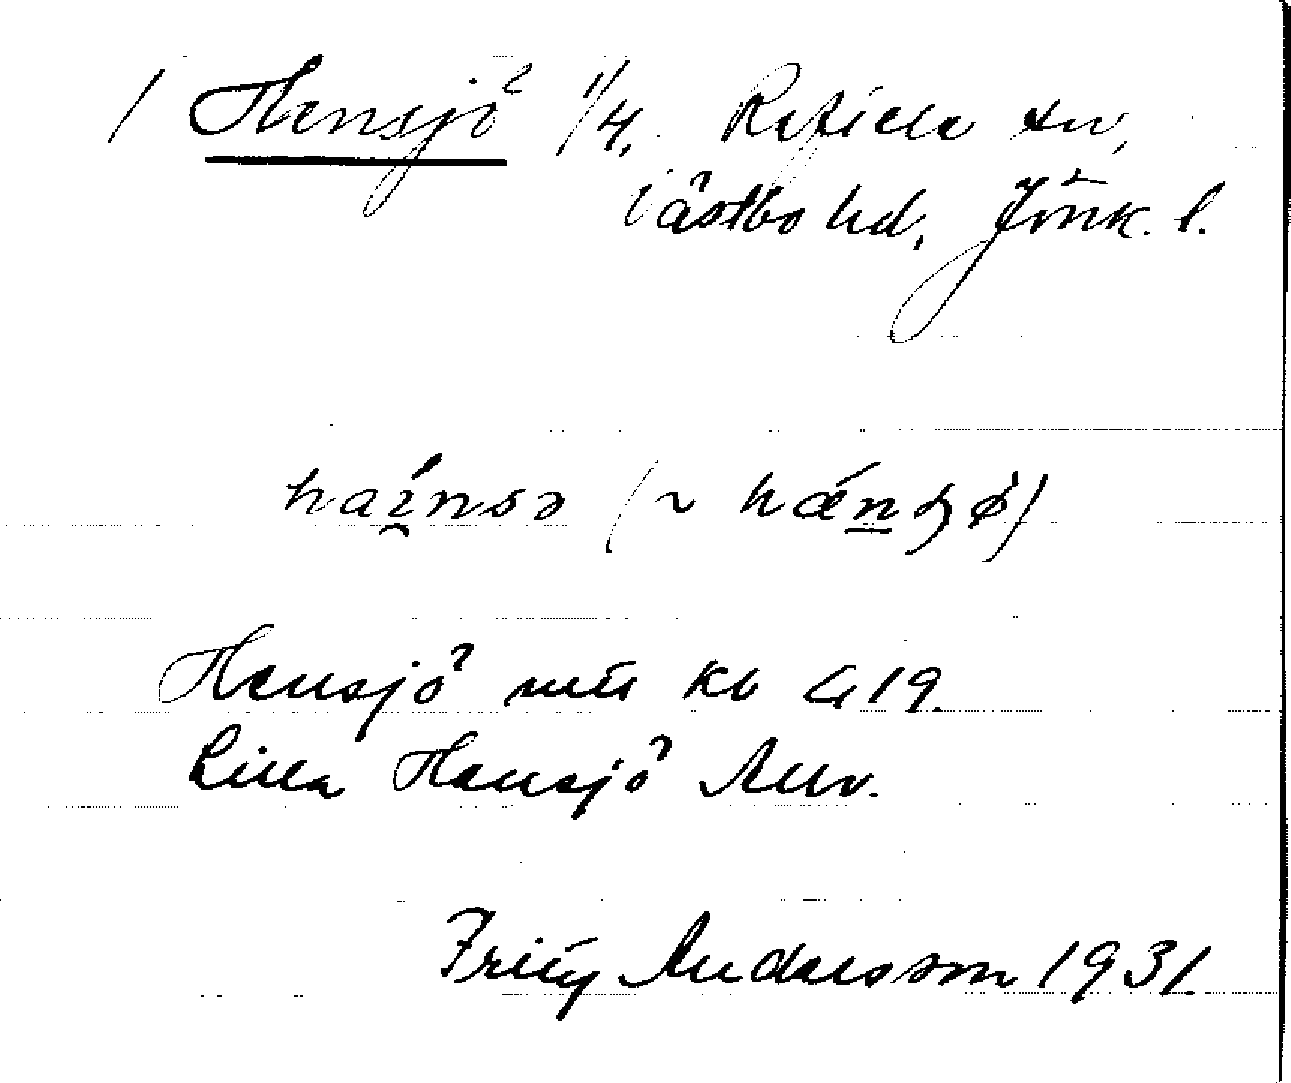 / Hensjö 1/4, Reftele sn,
Västbo hd, Jönk. l.
haí̯nsə (~ hǽn̲ȿø)
Hensjö mtl Kb G 19.
Lilla Hensjö Allm.
Fritz Andersson 1931.